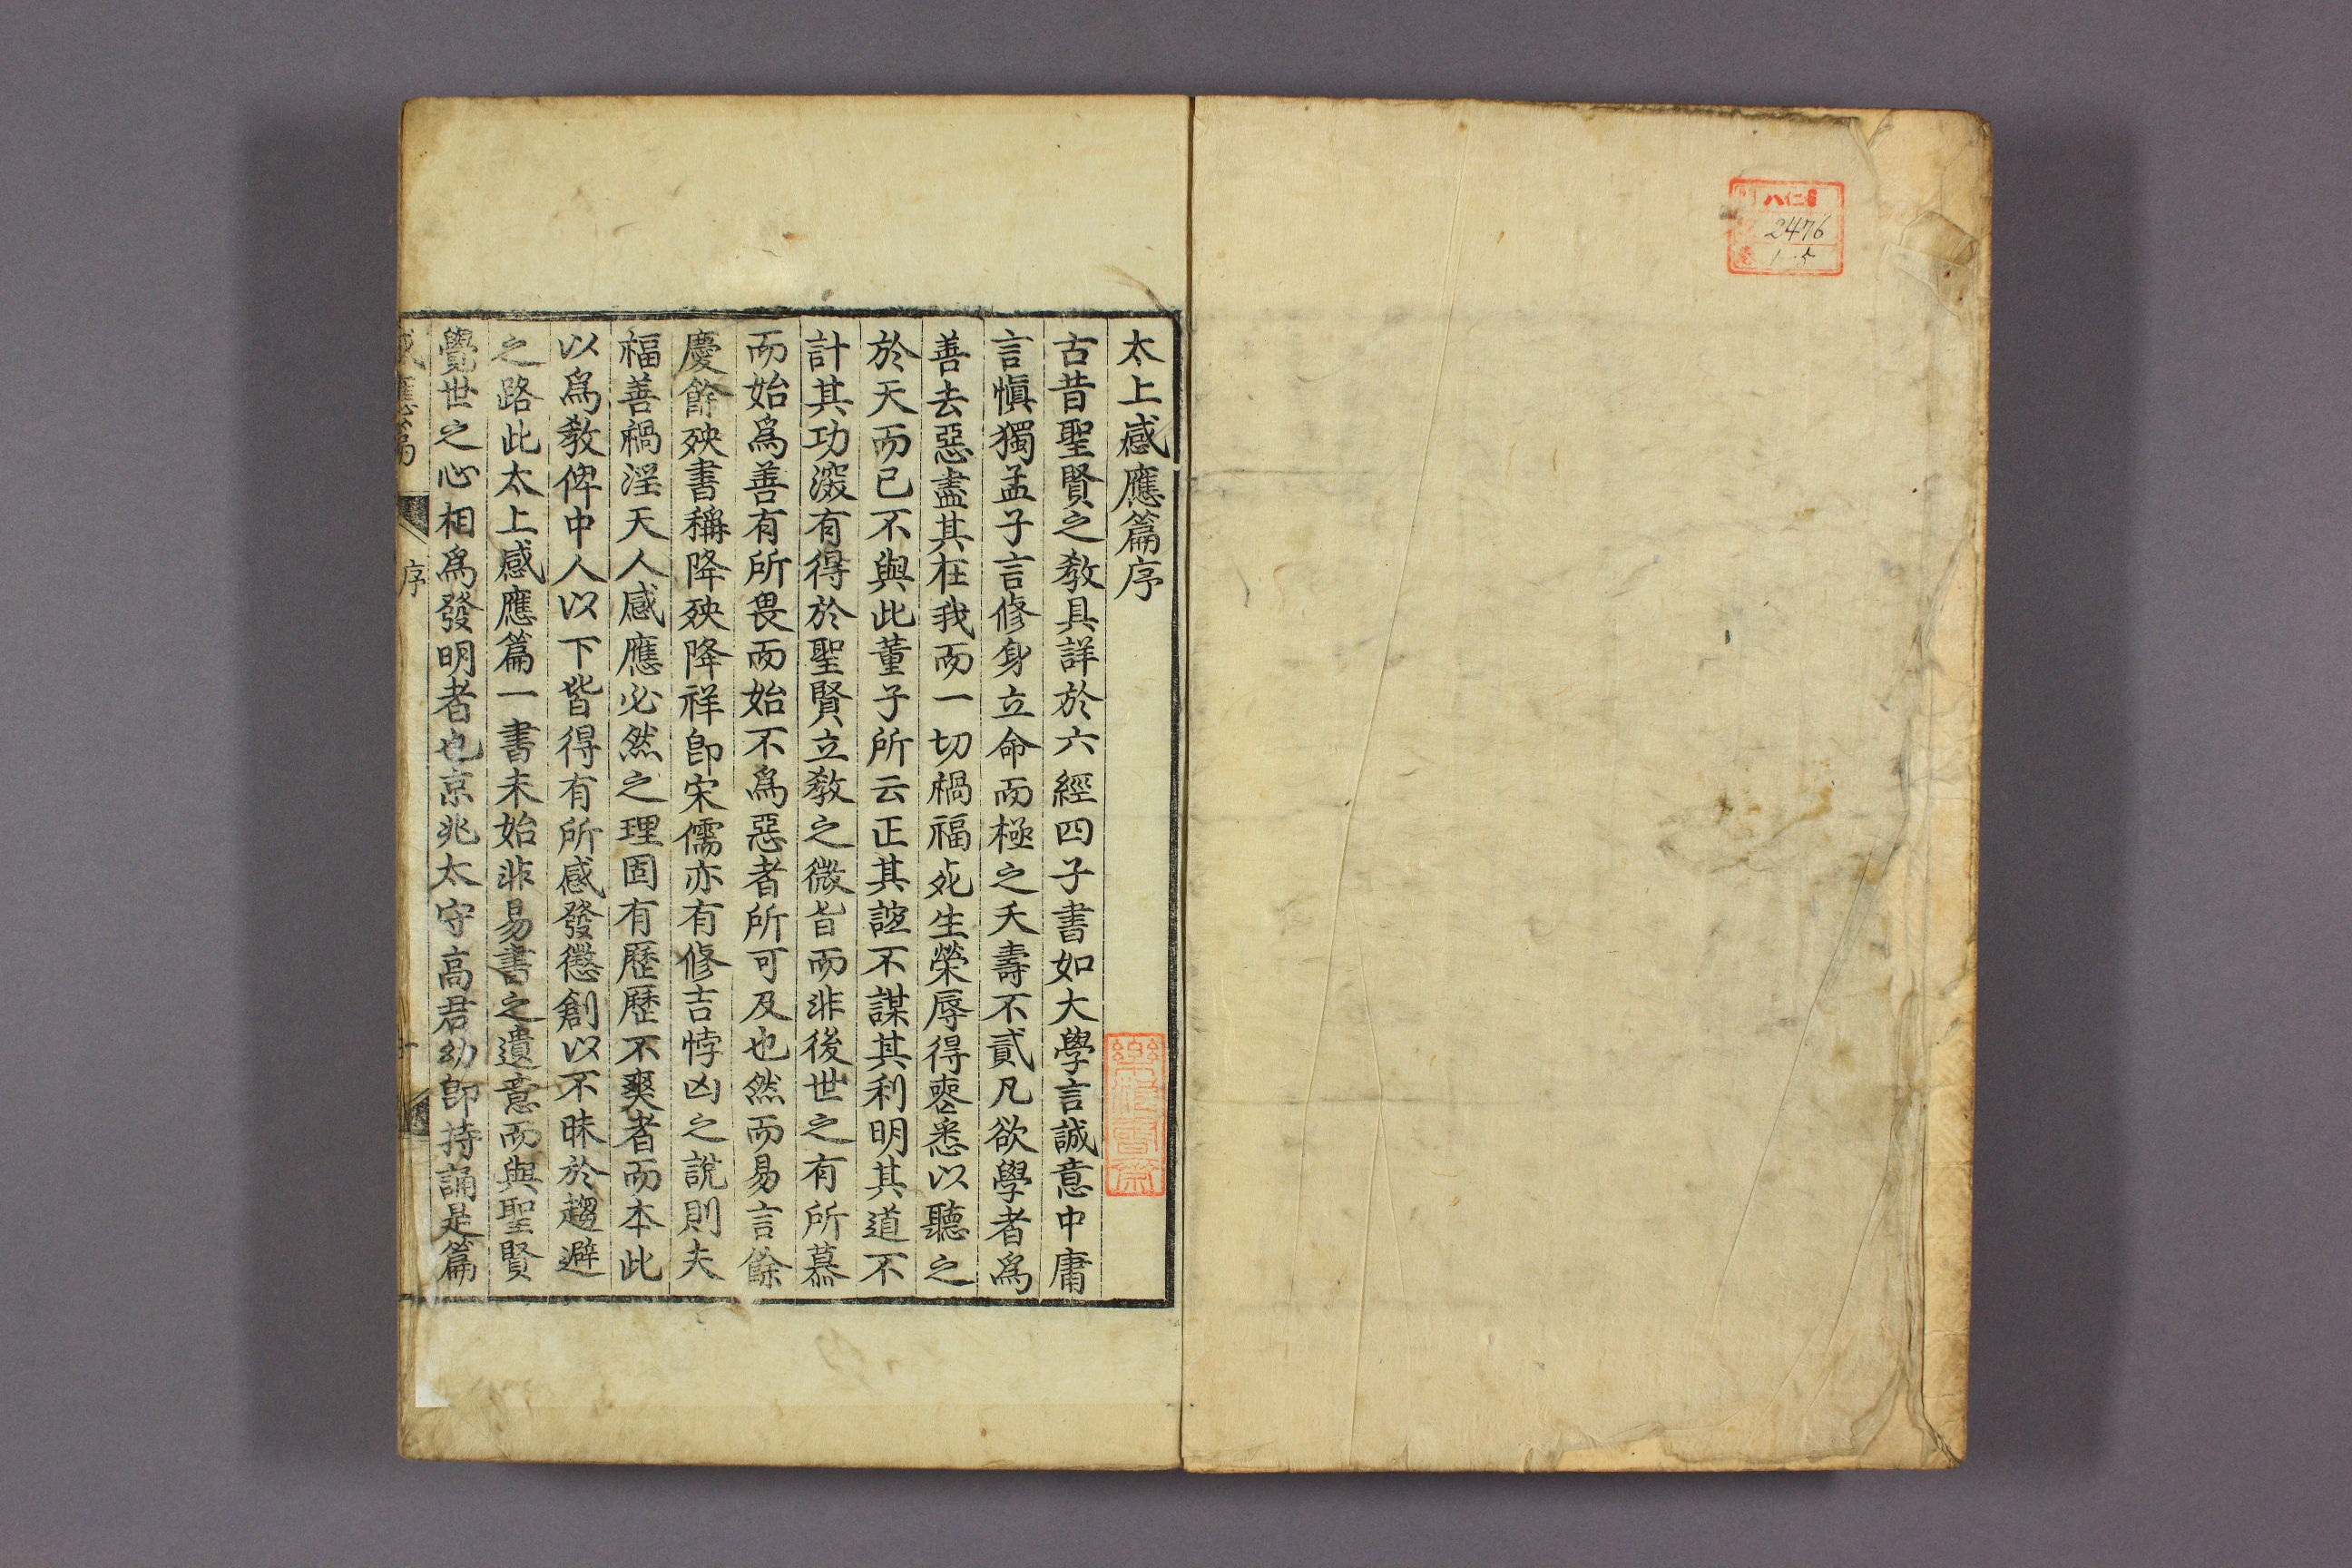 仁八
2476
1-5
太上感應篇序
古昔聖賢之敎具詳於六經四子書如大學言誠意中庸
言愼獨孟子言修身立命而極之夭壽不貳凡欲學者爲
善去惡盡其在我而一切禍福死生榮辱得喪悉以聽之
於天而已不與此董子所云正其誼不謀其利明其道不
計其功深有得於聖賢立敎之微旨而非後世之有所慕
而始爲善有所畏而始不爲惡者所可及也然而易言餘
慶餘殃書稱降殃降祥卽宋儒亦有修吉悖凶之說則夫
福善禍淫天人感應必然之理固有歷歷不爽者而本此
以爲敎俾中人以下皆得有所感發懲創以不昧於趨避
之路此太上感應篇一書未始非易書之遺意而與聖賢
覺世之心相爲發明者也京兆太守高君幼卽持誦是篇
感應篇
序